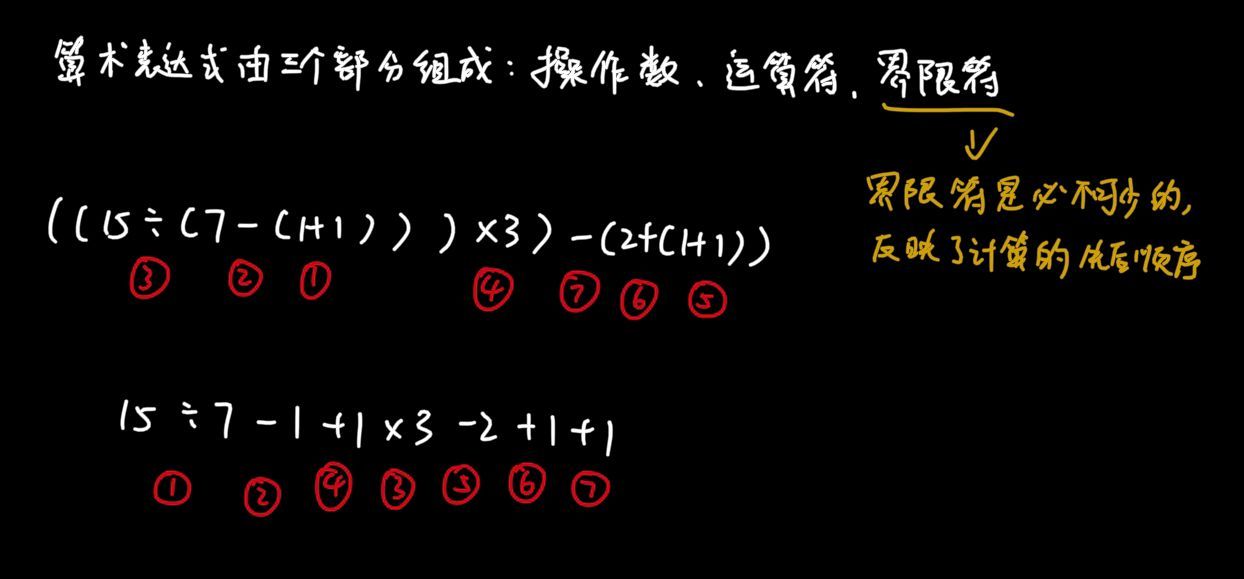 算术表达式由三个部分组成：操作数、运算符、界限符
界限符是必不可少的，
反映了计算的先后顺序
((15÷(7-(1+1)))×3)-(2+(1+1))
③ ② ① ④ ⑦ ⑥ ⑤
15÷7-1+1×3-2+1+1
① ② ④ ③ ⑤ ⑥ ⑦